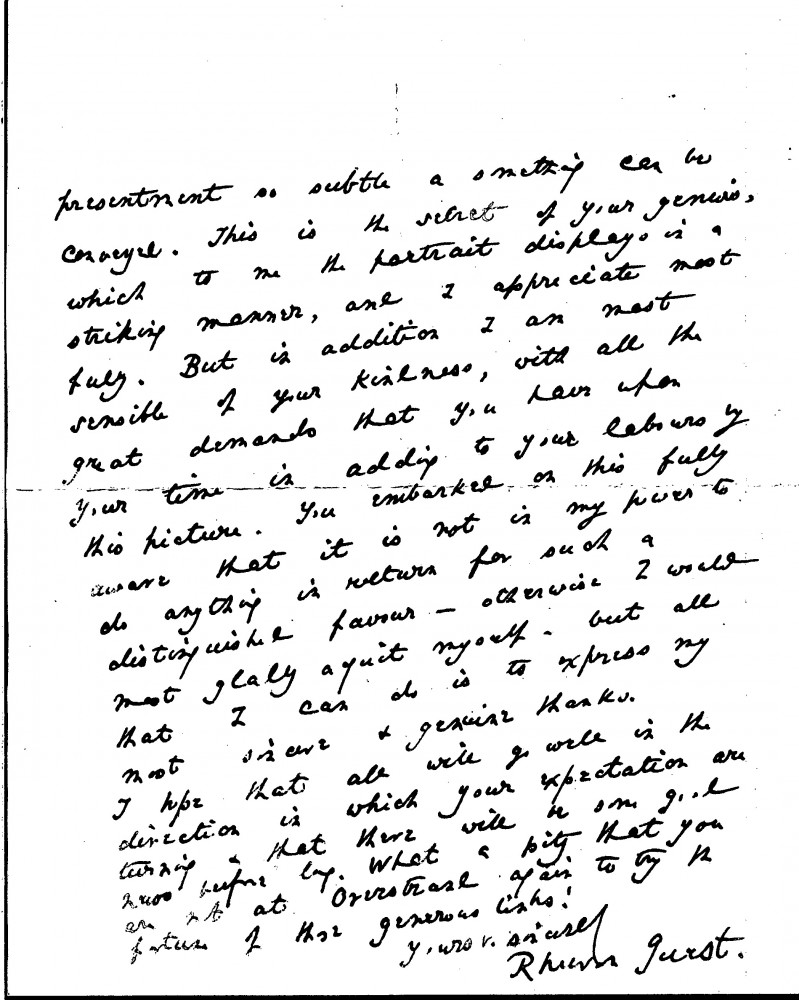 presentment so subtle a something can be
conveyed. This is the secret of your genius,
which to me the portrait displays in a
striking manner, and I appreciate most
fully. But in addition I am most
sensible of your kindness, with all the
great demands that you have upon
your time in adding to your labours by
this picture. You embarked on this fully
aware that it is not in my power to
do anything in return for such a
distinguished favour – otherwise I would
most gladly aquit myself – but all
that I can do is to express my
most sincere & genuine thanks.
I hope that all will go well in the
direction in which your expectation are
turning & that there will be some good
news before long. What a pity that you
are not at Overstrand again to try the
fortune of those generous links!
Yours v. sincerely